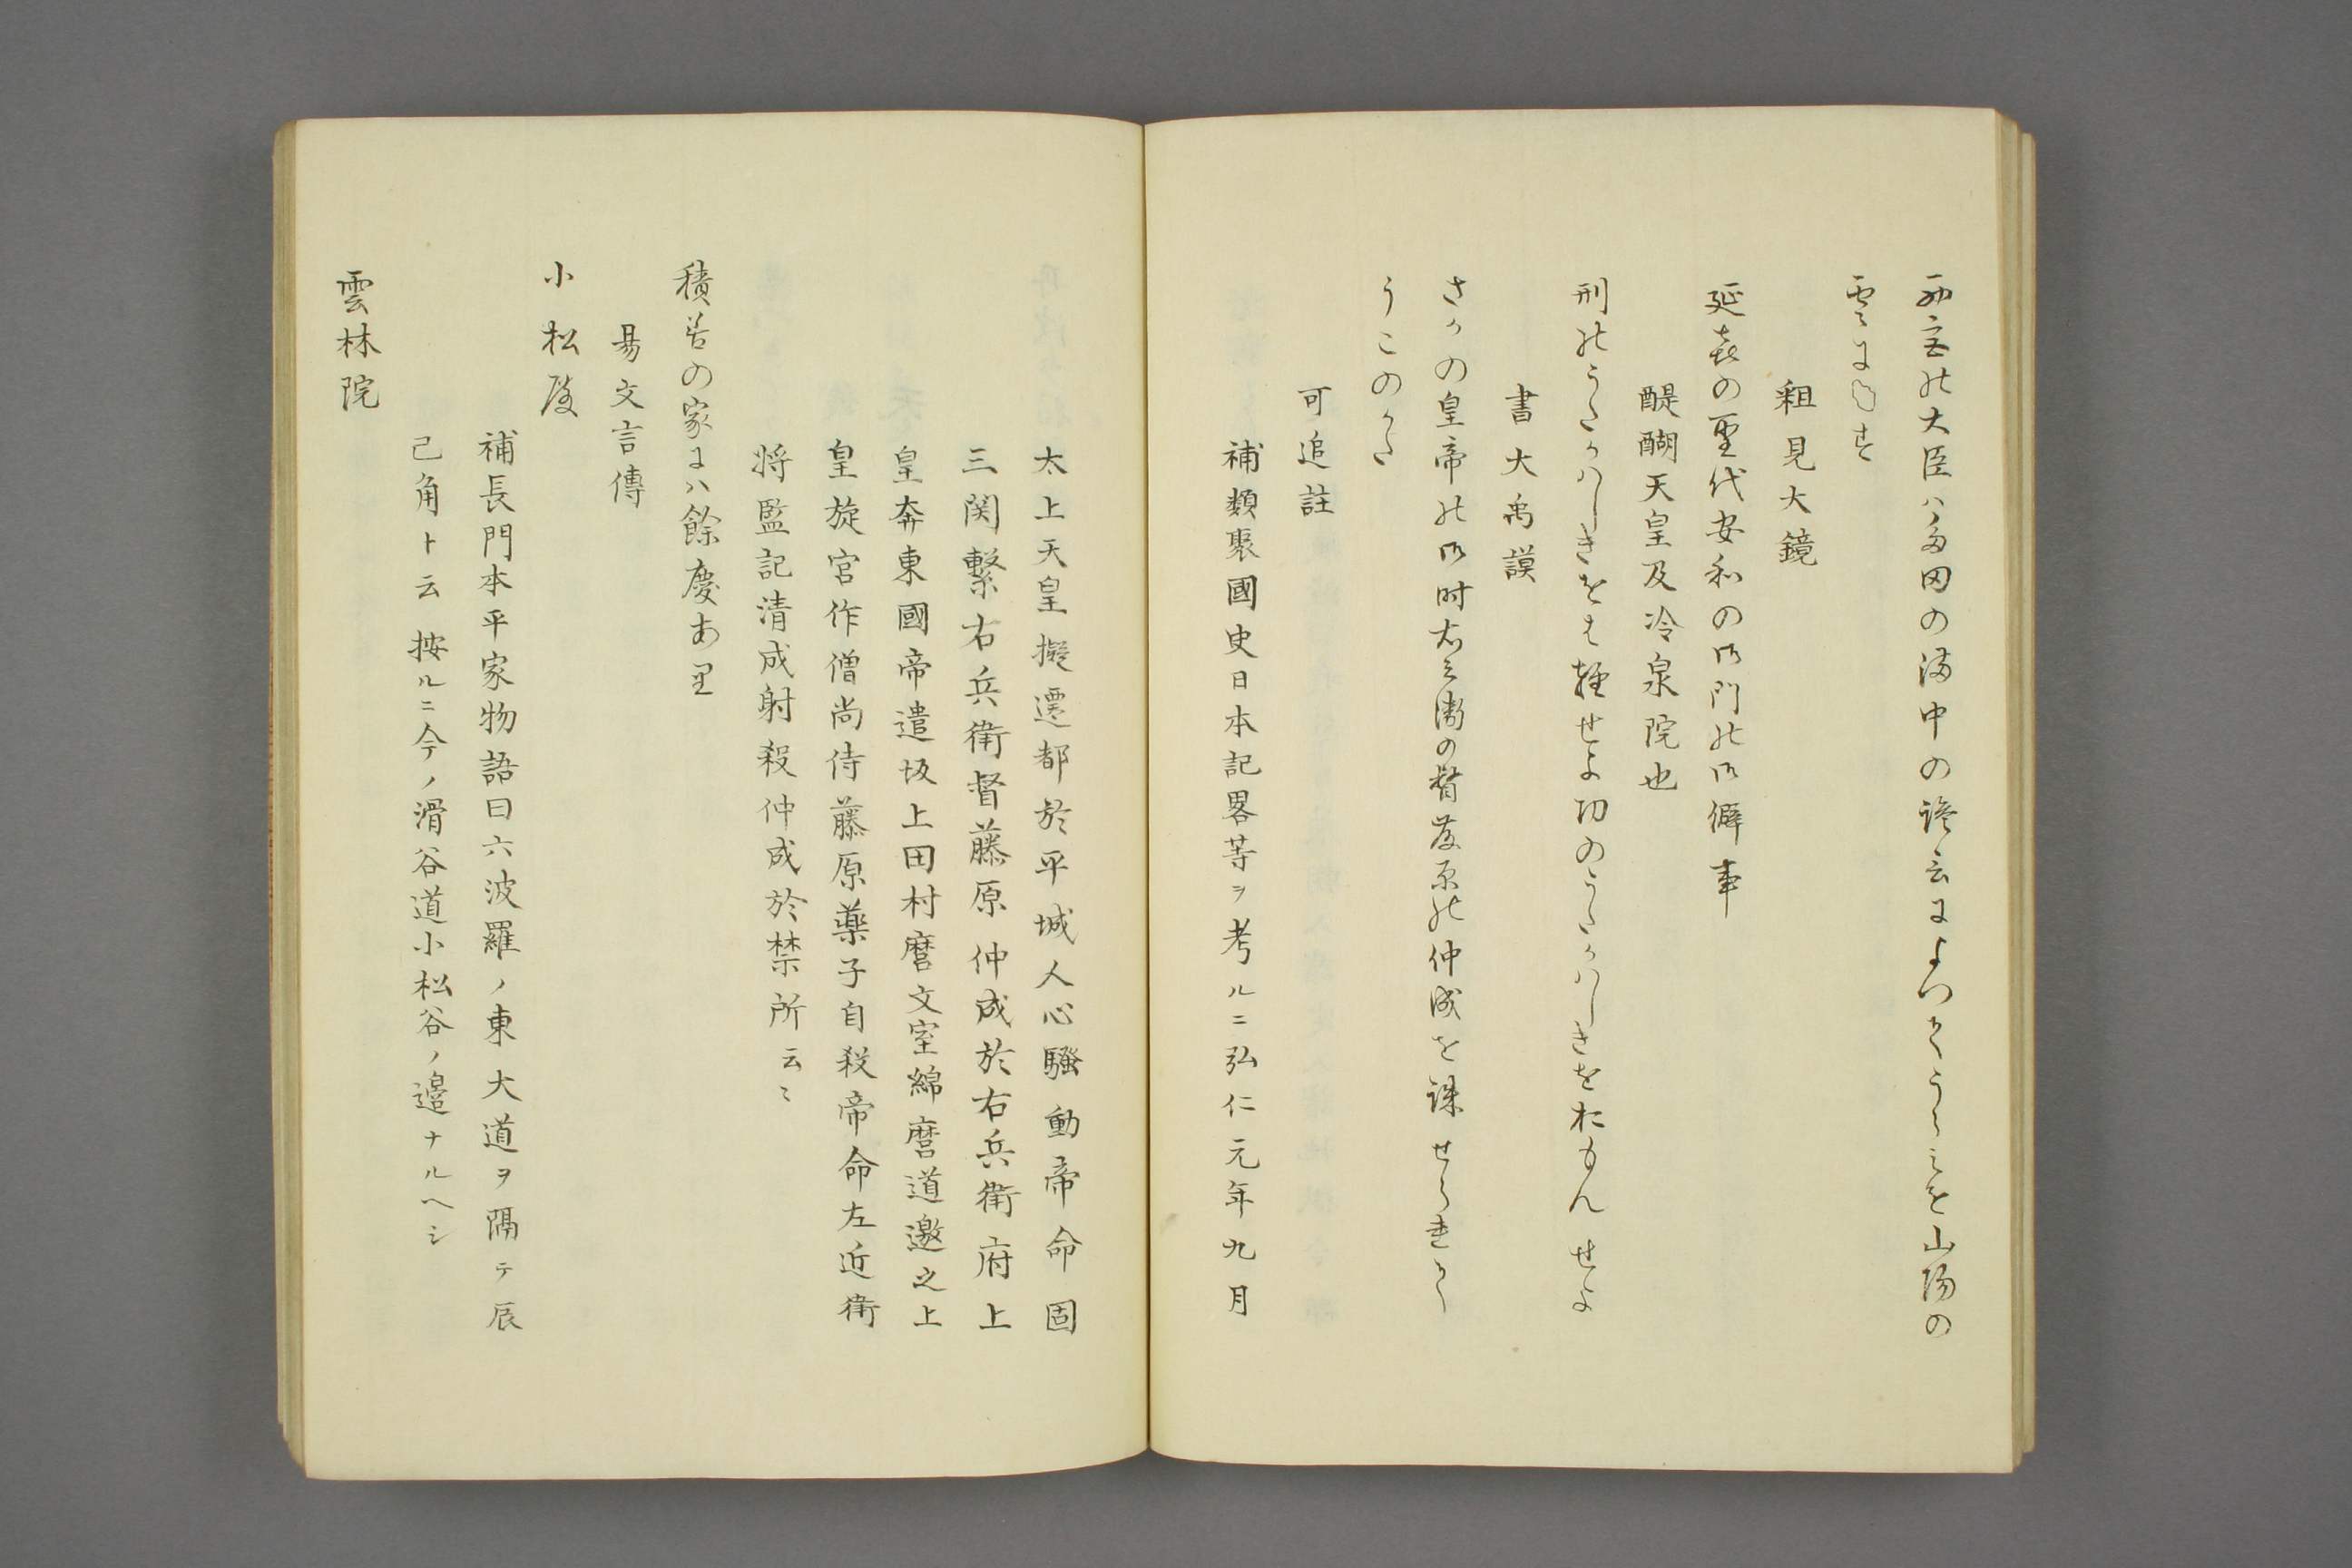 西宮の大臣ハ多田の満中の讒言によつてうらみを山陽の
雲に◯す
粗見大鏡
延㐂の聖代安和の御門の御僻事
醍醐天皇及冷泉院也
刑のうたかハしきをは軽せよ功のうたかハしきをおもんせよ
書大禹謨
さかの皇帝の御时右兵衛の督藤原の仲成を誅せられてく
うこのかた
可追註
補類聚國史日本記畧等ヲ考ルニ弘仁元年九月
太上天皇擬遷都於平城人心騷動帝命固
三関繫右兵衛督藤原仲成於右兵衛府上
皇奔東國帝遣坂上田村麿文室綿麿道邀之上
皇旋宮作僧尚侍藤原藥子自殺帝命左近衛
将監記清成射殺仲成於禁所云〻
積善の家にハ餘慶あり
易文言傳
小松殿
補長門本平家物語曰六波羅ノ東大道ヲ隔テ辰
己角ト云按ルニ今ノ滑谷道小松谷ノ邉ナルヘシ
雲林院